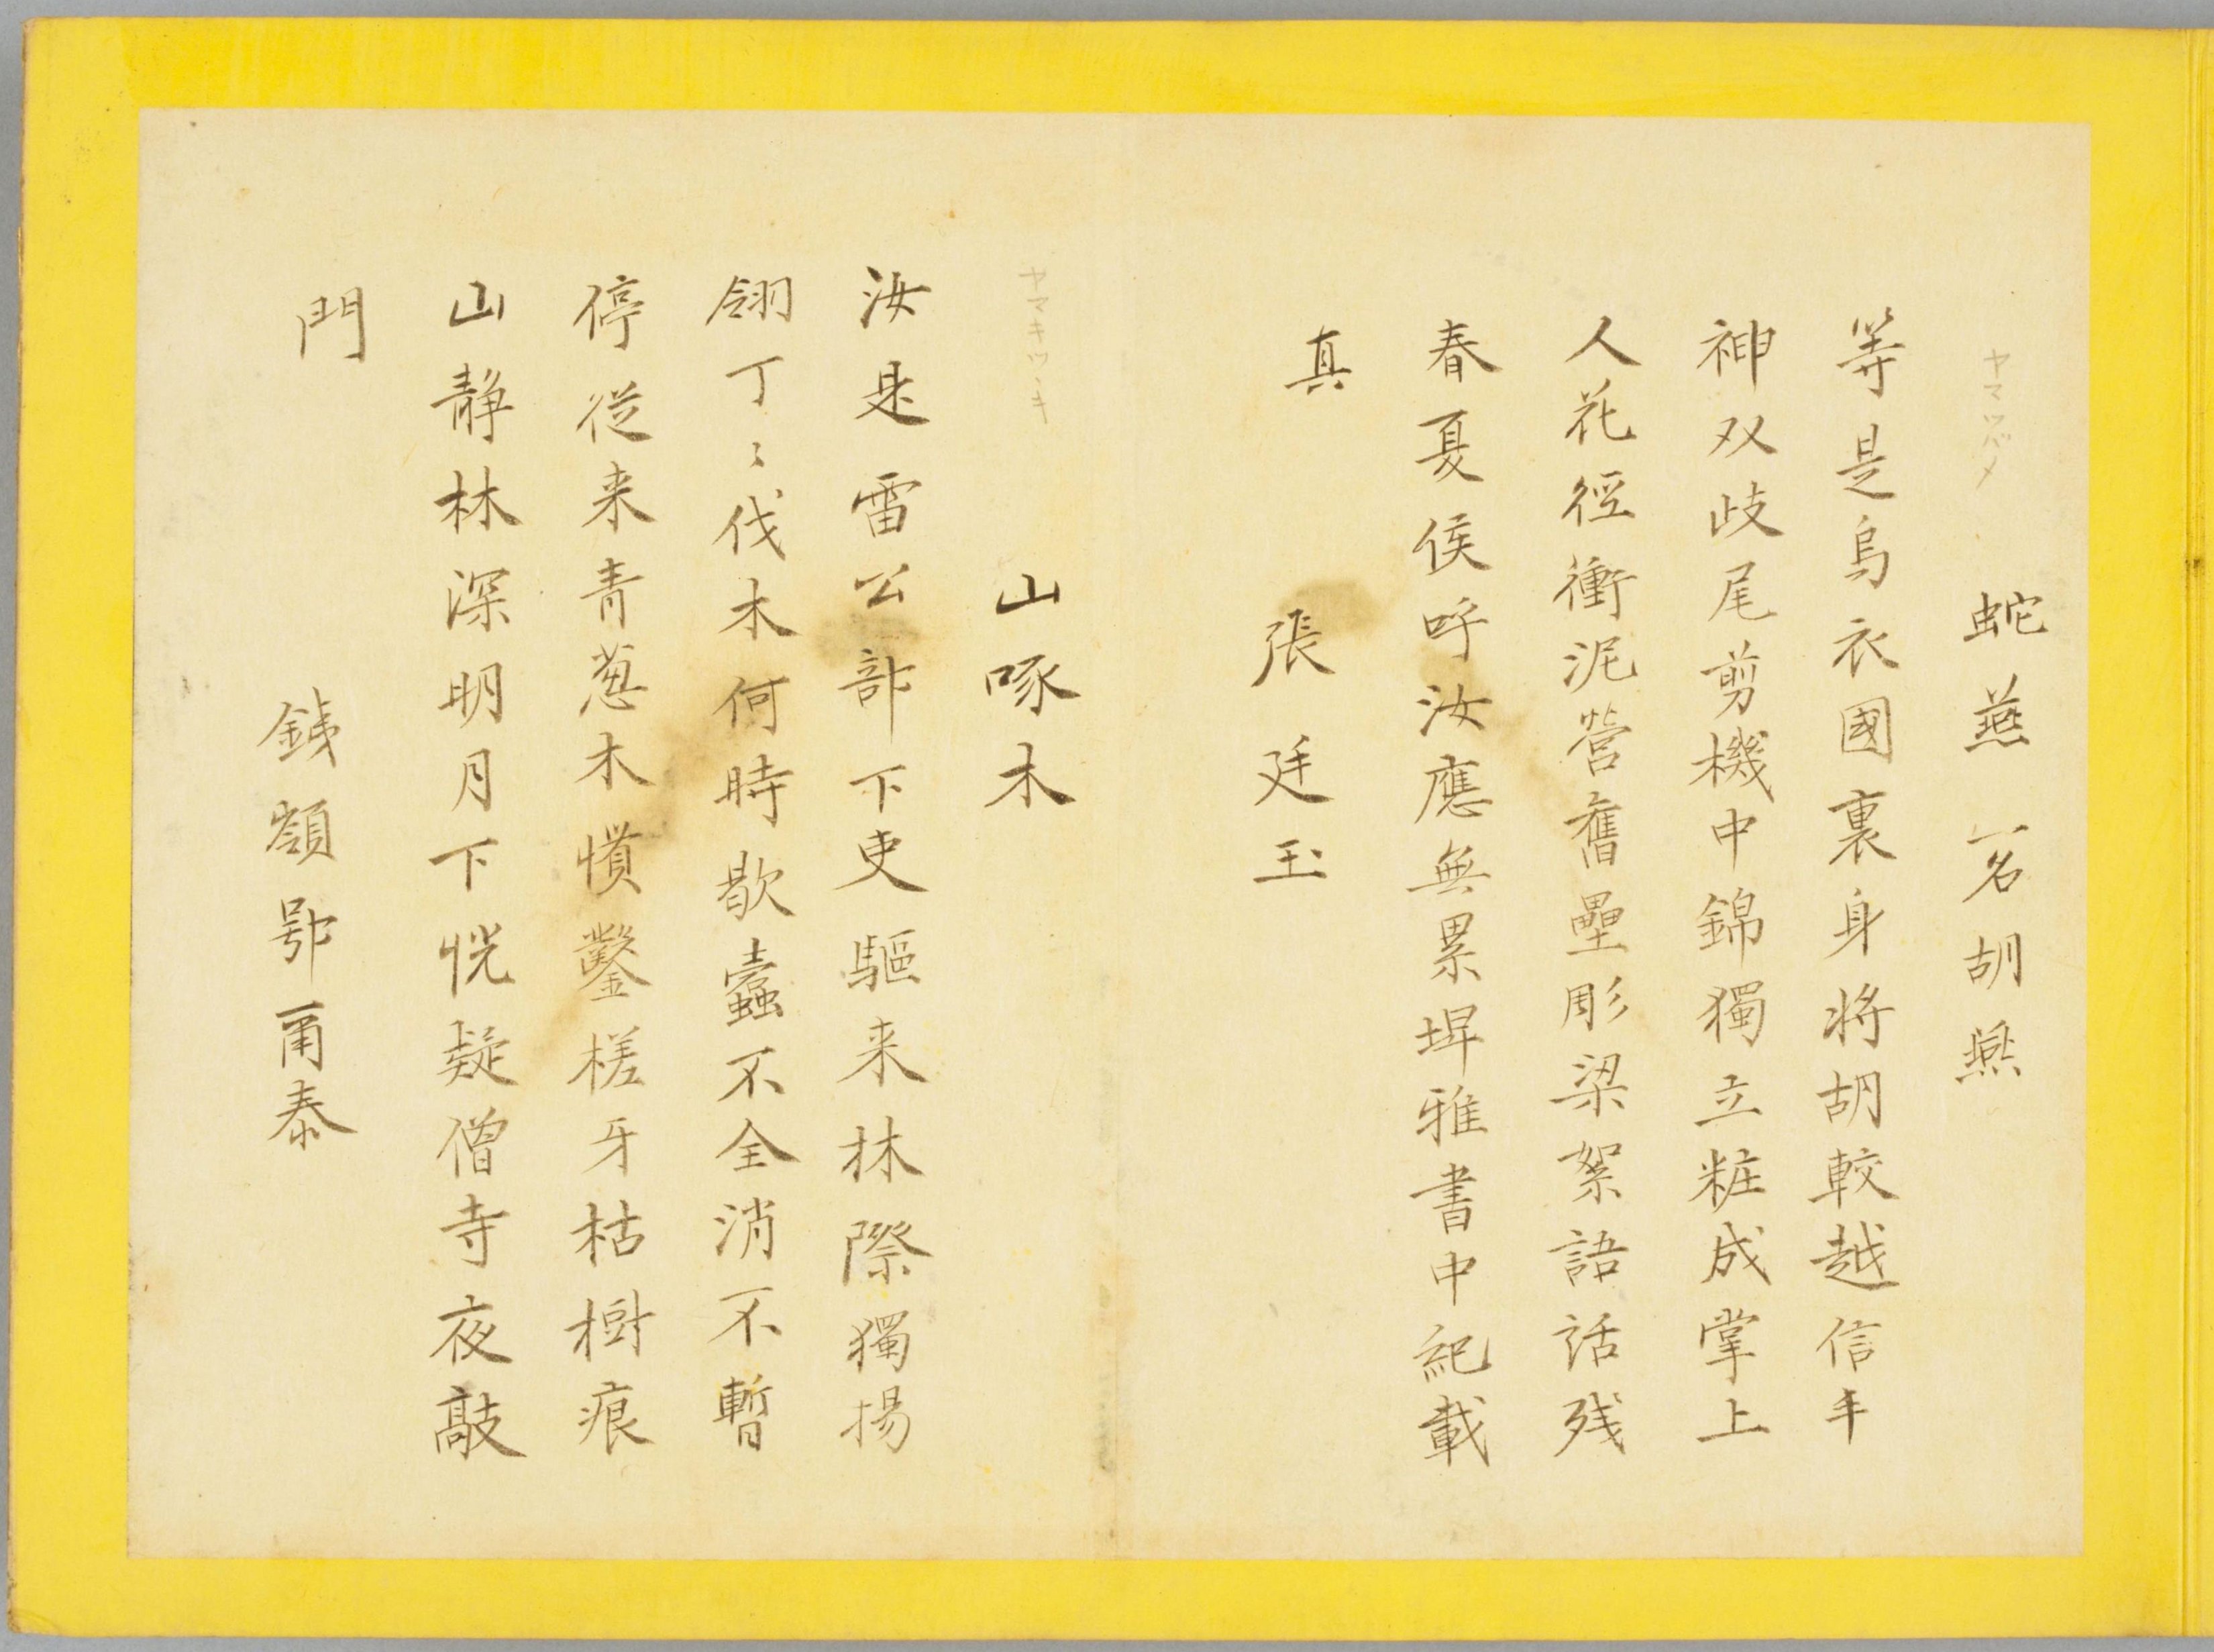 ヤマツバメ
蛇燕一名胡燕
等是烏衣國裏身將胡較越信手
神双歧尾剪機中錦獨立粧成掌上
人花徑衝泥營舊壘彫梁絮語話残
春夏侯呼汝應無累埤雅書中紀載
真
張廷玉
ヤマキツヽキ
山啄木
汝是雷公部下吏驅来林際獨揚
翎丁〻伐木何時歇蠹不全消不暫
停從来青葱木慣鑿槎牙枯樹痕
山静林深明月下恍疑僧寺夜敲
門
銕嶺鄂甭泰